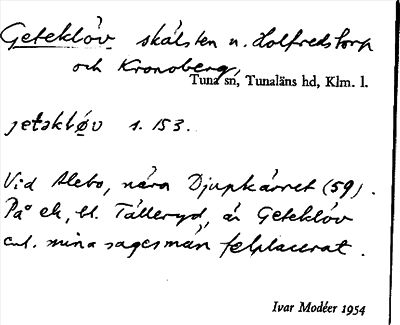 Geteklöv skålsten n. Holfredstorp
och Kronoberg,
Tuna sn, Tunaläns hd, Klm. l.
jetəkløv s. 153.
Vid Alebo, nära Djupkärret (59).
På ek, bl. Tälleryd, är Geteklöv
enl. mina sagesmän felplacerat.
Ivar Modéer 1954